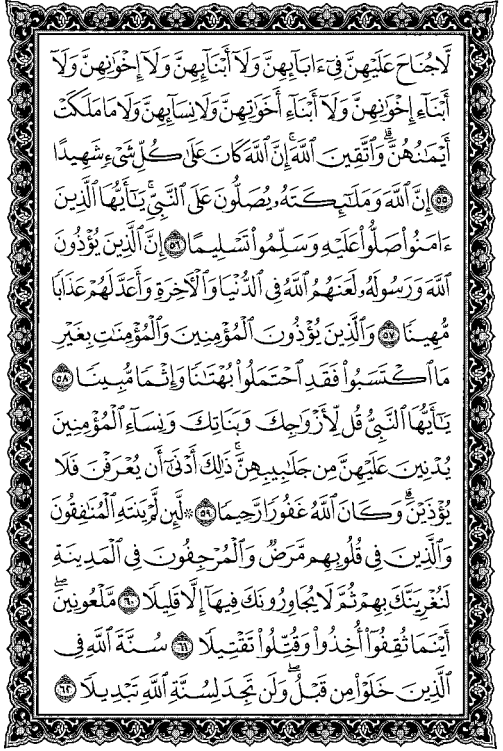 لَّا جُنَاحَ عَلَيْهِنَّ فِىٓ ءَابَآئِهِنَّ وَلَآ أَبْنَآئِهِنَّ وَلَآ إِخْوَٰنِهِنَّ وَلَآ
أَبْنَآءِ إِخْوَٰنِهِنَّ وَلَآ أَبْنَآءِ أَخَوَٰتِهِنَّ وَلَا نِسَآئِهِنَّ وَلَا مَا مَلَكَتْ
أَيْمَٰنُهُنَّ ۗ وَٱتَّقِينَ ٱللَّهَ ۚ إِنَّ ٱللَّهَ كَانَ عَلَىٰ كُلِّ شَىْءٍ شَهِيدًا
٥٥ إِنَّ ٱللَّهَ وَمَلَٰٓئِكَتَهُۥ يُصَلُّونَ عَلَى ٱلنَّبِىِّ ۚ يَٰٓأَيُّهَا ٱلَّذِينَ
ءَامَنُوا۟ صَلُّوا۟ عَلَيْهِ وَسَلِّمُوا۟ تَسْلِيمًا ٥٦ إِنَّ ٱلَّذِينَ يُؤْذُونَ
ٱللَّهَ وَرَسُولَهُۥ لَعَنَهُمُ ٱللَّهُ فِى ٱلدُّنْيَا وَٱلْءَاخِرَةِ وَأَعَدَّ لَهُمْ عَذَابًا
مُّهِينًا ٥٧ وَٱلَّذِينَ يُؤْذُونَ ٱلْمُؤْمِنِينَ وَٱلْمُؤْمِنَٰتِ بِغَيْرِ
مَا ٱكْتَسَبُوا۟ فَقَدِ ٱحْتَمَلُوا۟ بُهْتَٰنًا وَإِثْمًا مُّبِينًا ٥٨
يَٰٓأَيُّهَا ٱلنَّبِىُّ قُل لِّأَزْوَٰجِكَ وَبَنَاتِكَ وَنِسَآءِ ٱلْمُؤْمِنِينَ
يُدْنِينَ عَلَيْهِنَّ مِن جَلَٰبِيبِهِنَّ ۚ ذَٰلِكَ أَدْنَىٰٓ أَن يُعْرَفْنَ فَلَا
يُؤْذَيْنَ ۗ وَكَانَ ٱللَّهُ غَفُورًا رَّحِيمًا ٥٩ ۞ لَّئِن لَّمْ يَنتَهِ ٱلْمُنَٰفِقُونَ
وَٱلَّذِينَ فِى قُلُوبِهِم مَّرَضٌ وَٱلْمُرْجِفُونَ فِى ٱلْمَدِينَةِ
لَنُغْرِيَنَّكَ بِهِمْ ثُمَّ لَا يُجَاوِرُونَكَ فِيهَآ إِلَّا قَلِيلًا ٦٠ مَّلْعُونِينَ ۖ
أَيْنَمَا ثُقِفُوٓا۟ أُخِذُوا۟ وَقُتِّلُوا۟ تَقْتِيلًا ٦١ سُنَّةَ ٱللَّهِ فِى
ٱلَّذِينَ خَلَوْا۟ مِن قَبْلُ ۖ وَلَن تَجِدَ لِسُنَّةِ ٱللَّهِ تَبْدِيلًا ٦٢